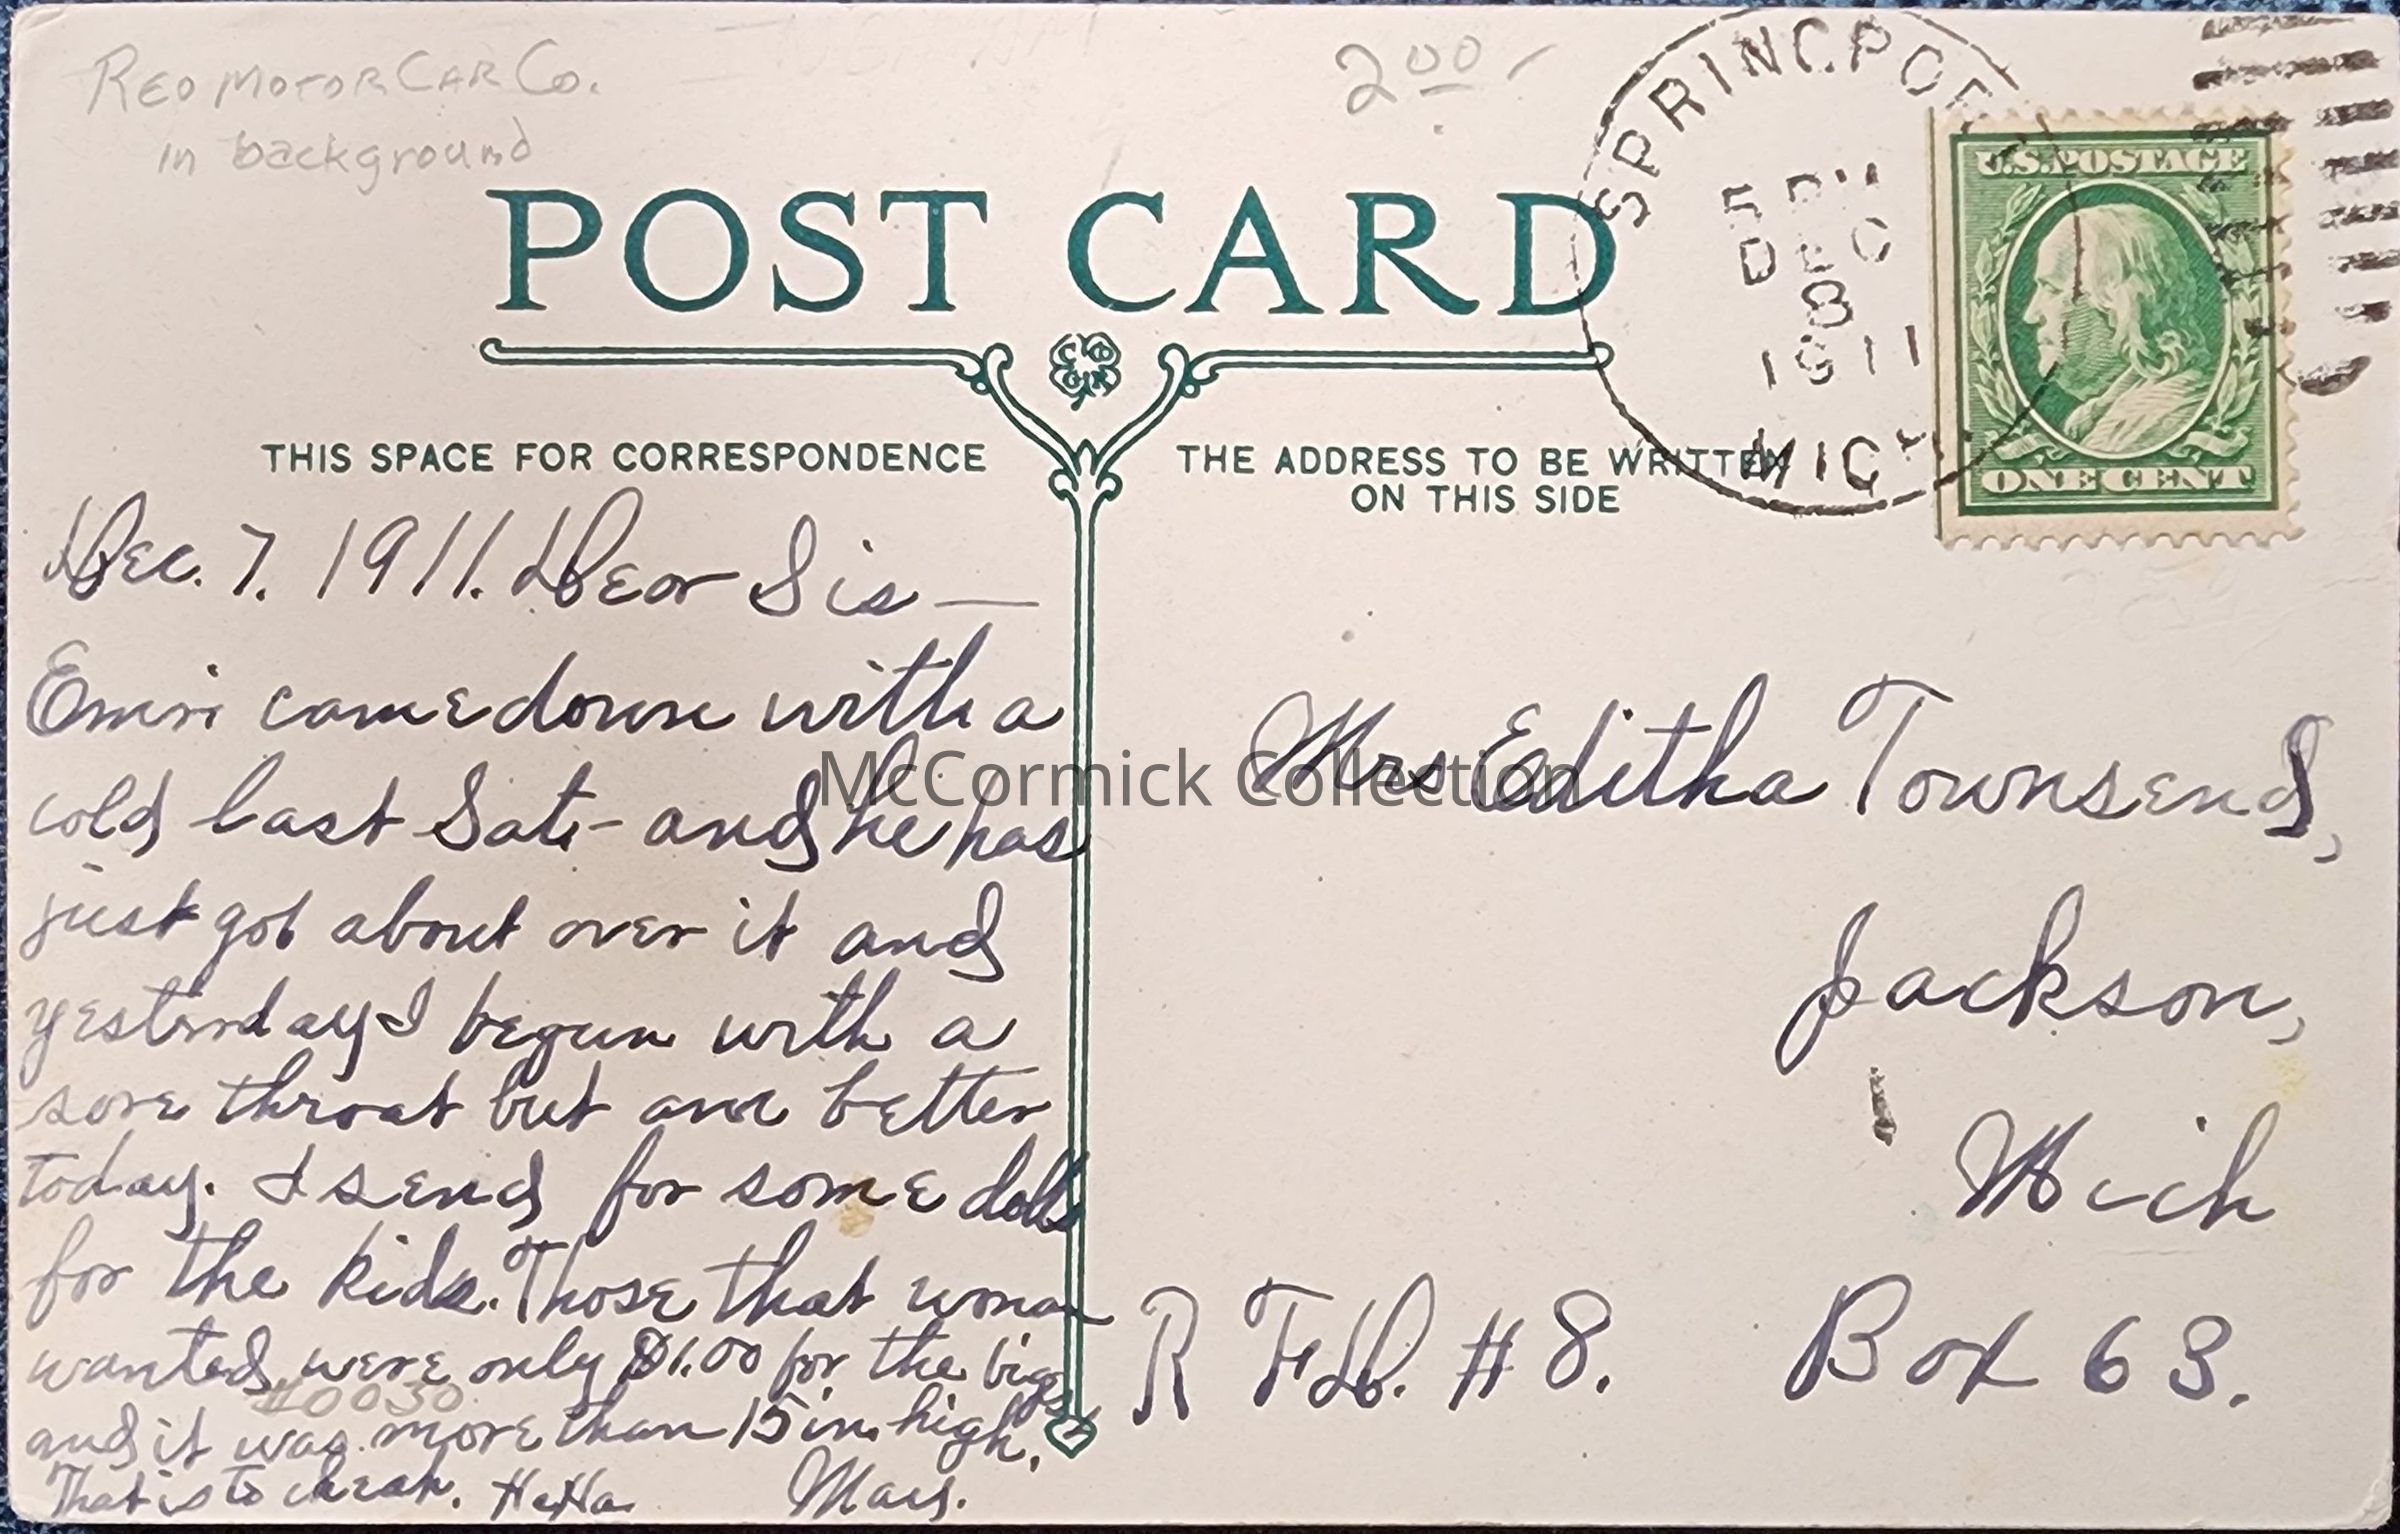 REO MOTOR CAR Co.
in background
2 00
SPRINGPORT
5 PM
DEC
8
1911
MICH
U.S. POSTAGE
ONE CENT
POST CARD
THIS SPACE FOR CORRESPONDENCE
THE ADDRESS TO BE WRITTEN
ON THIS SIDE
Dec. 7. 1911. Dear Sis —
Emri came down with a
cold last Sat- and he has
just got about over it and
yesterday I begun with a
sore throat but am better
today. I send for some dolls
for the kids. Those that woman
wanted were only $1.00 for the bigest
and it was more than 15 in. high.
That is to cheap. HaHa
#0030
Mrs Editha Townsend,
Jackson,
Mich
R F D. #8. Box 63.
McCormick Collection